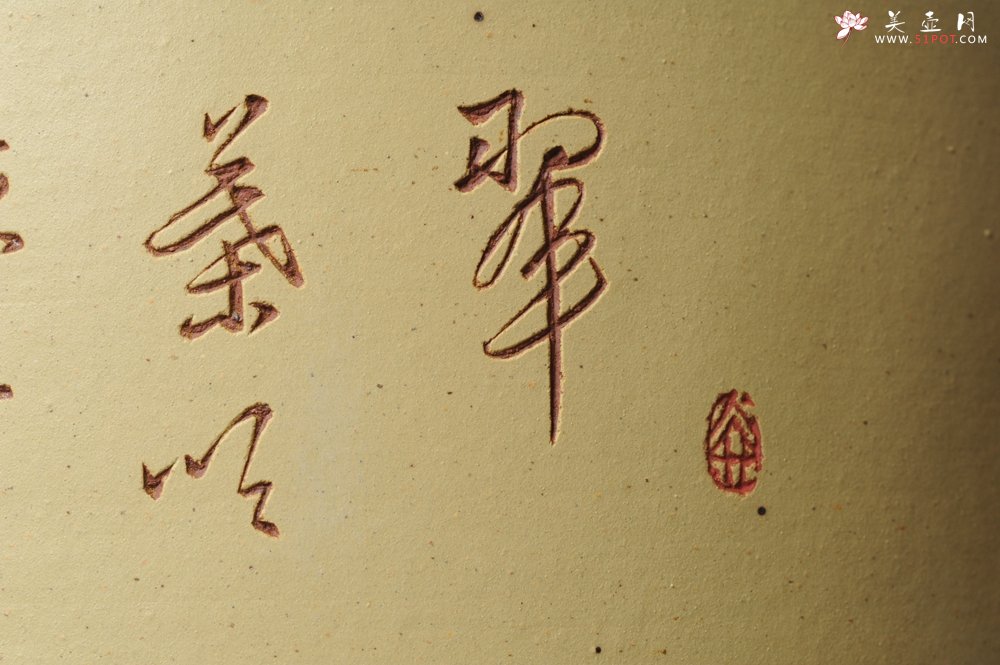 美壶网
WWW.51POT.COM
翠
葉吟